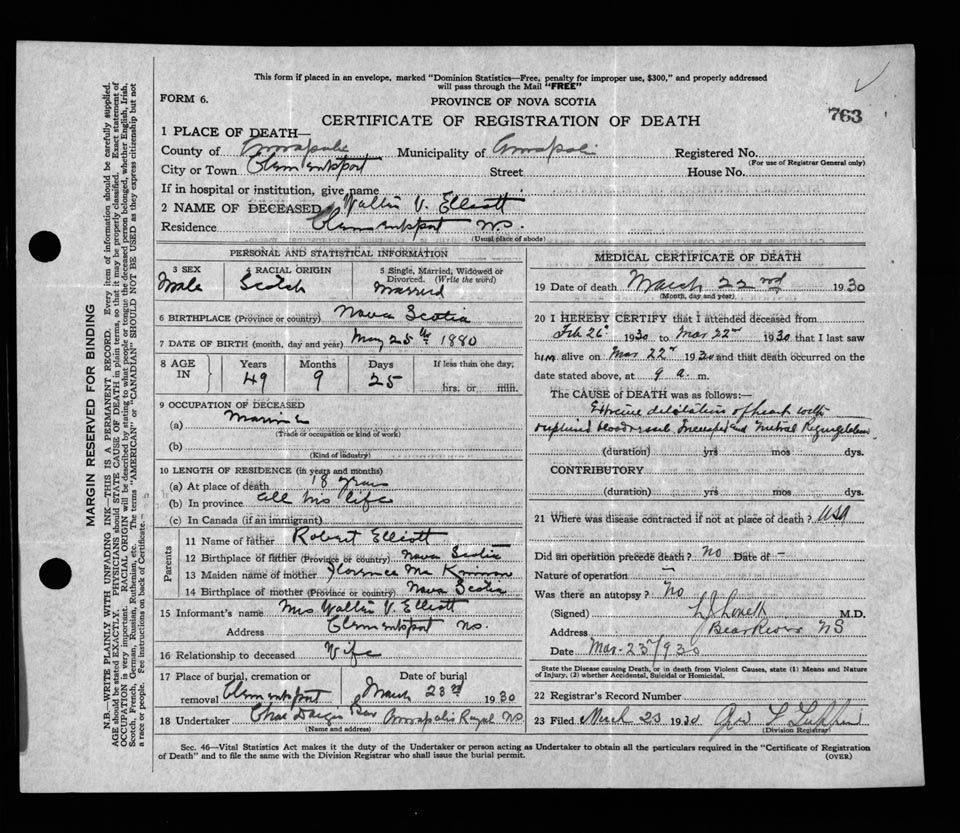 This form if placed in an envelope, marked "Dominion Statistics—Free, penalty for improper use, $300," and properly addressed
will pass through the Mail "FREE"
FORM 6.
PROVINCE OF NOVA SCOTIA
763
CERTIFICATE OF REGISTRATION OF DEATH
1 PLACE OF DEATH—
County of Annapolis Municipality of Annapolis Registered No.
(For use of Registrar General only)
City or Town Clementsport Street House No.
If in hospital or institution, give name
2 NAME OF DECEASED Walter V. Elliott
Residence Clementsport N.S.
(Usual place of abode)
PERSONAL AND STATISTICAL INFORMATION
3 SEX 4 RACIAL ORIGIN 5 Single, Married, Widowed or
Divorced. (Write the word)
Male Scotch Married
6 BIRTHPLACE (Province or country) Nova Scotia
7 DATE OF BIRTH (month, day and year) May 25th 1880
8 AGE IN Years Months Days If less than one day,
49 9 25 hrs. or min.
9 OCCUPATION OF DECEASED
(a)
(Trade or occupation or kind of work)
(b)
(Kind of industry)
10 LENGTH OF RESIDENCE (in years and months)
(a) At place of death 18 years
(b) In province all his life
(c) In Canada (if an immigrant)
Parents
11 Name of father Robert Elliott
12 Birthplace of father (Province or country) Nova Scotia
13 Maiden name of mother Florence Mc
14 Birthplace of mother (Province or country) Nova Scotia
15 Informant's name Mrs Walter V. Elliott
Address Clementsport N.S.
16 Relationship to deceased Wife
17 Place of burial, cremation or
removal Clementsport
Date of burial
March 23rd 1930
18 Undertaker Chas Annapolis Royal N.S.
(Name and address)
MEDICAL CERTIFICATE OF DEATH
19 Date of death March 22nd 1930
(Month, day and year)
20 I HEREBY CERTIFY that I attended deceased from
Feb 26 1930 to Mar 22nd 1930 that I last saw
him alive on Mar 22nd 1930 and that death occurred on the
date stated above, at 9 a. m.
The CAUSE OF DEATH was as follows:—
Extreme dilatation of heart with
ruptured blood vessel and Mitral Regurgitation
(duration) yrs mos dys.
CONTRIBUTORY
(duration) yrs. mos. dys.
21 Where was disease contracted if not at place of death? USA
Did an operation precede death? No Date of –
Nature of operation –
Was there an autopsy? No
(Signed) M.D.
Address Bear River NS
Date Mar. 25/930
State the Disease causing Death, or in death from Violent Causes, state (1) Means and Nature
of Injury, (2) whether Accidental, Suicidal or Homicidal.
22 Registrar's Record Number
23 Filed March 25 1930
(Division Registrar)
Sec. 46—Vital Statistics Act makes it the duty of the Undertaker or person acting as Undertaker to obtain all the particulars required in the "Certificate of Registration
of Death" and to file the same with the Division Registrar who shall issue the burial permit. (OVER)
MARGIN RESERVED FOR BINDING
N.B.—WRITE PLAINLY WITH UNFADING INK—THIS IS A PERMANENT RECORD. Every item of information should be carefully supplied.
AGE should be stated EXACTLY. PHYSICIANS should STATE CAUSE OF DEATH in plain terms, so that it may be properly classified. Exact statement of
OCCUPATION is very important. RACIAL ORIGIN will be described by stating to what people or tongue the deceased person belonged, whether English, Irish,
Scotch, French, German, Russian, Ruthenian, etc. The terms "AMERICAN" or "CANADIAN" SHOULD NOT BE USED as they express citizenship but not
a race or people. See instructions on back of Certificate.